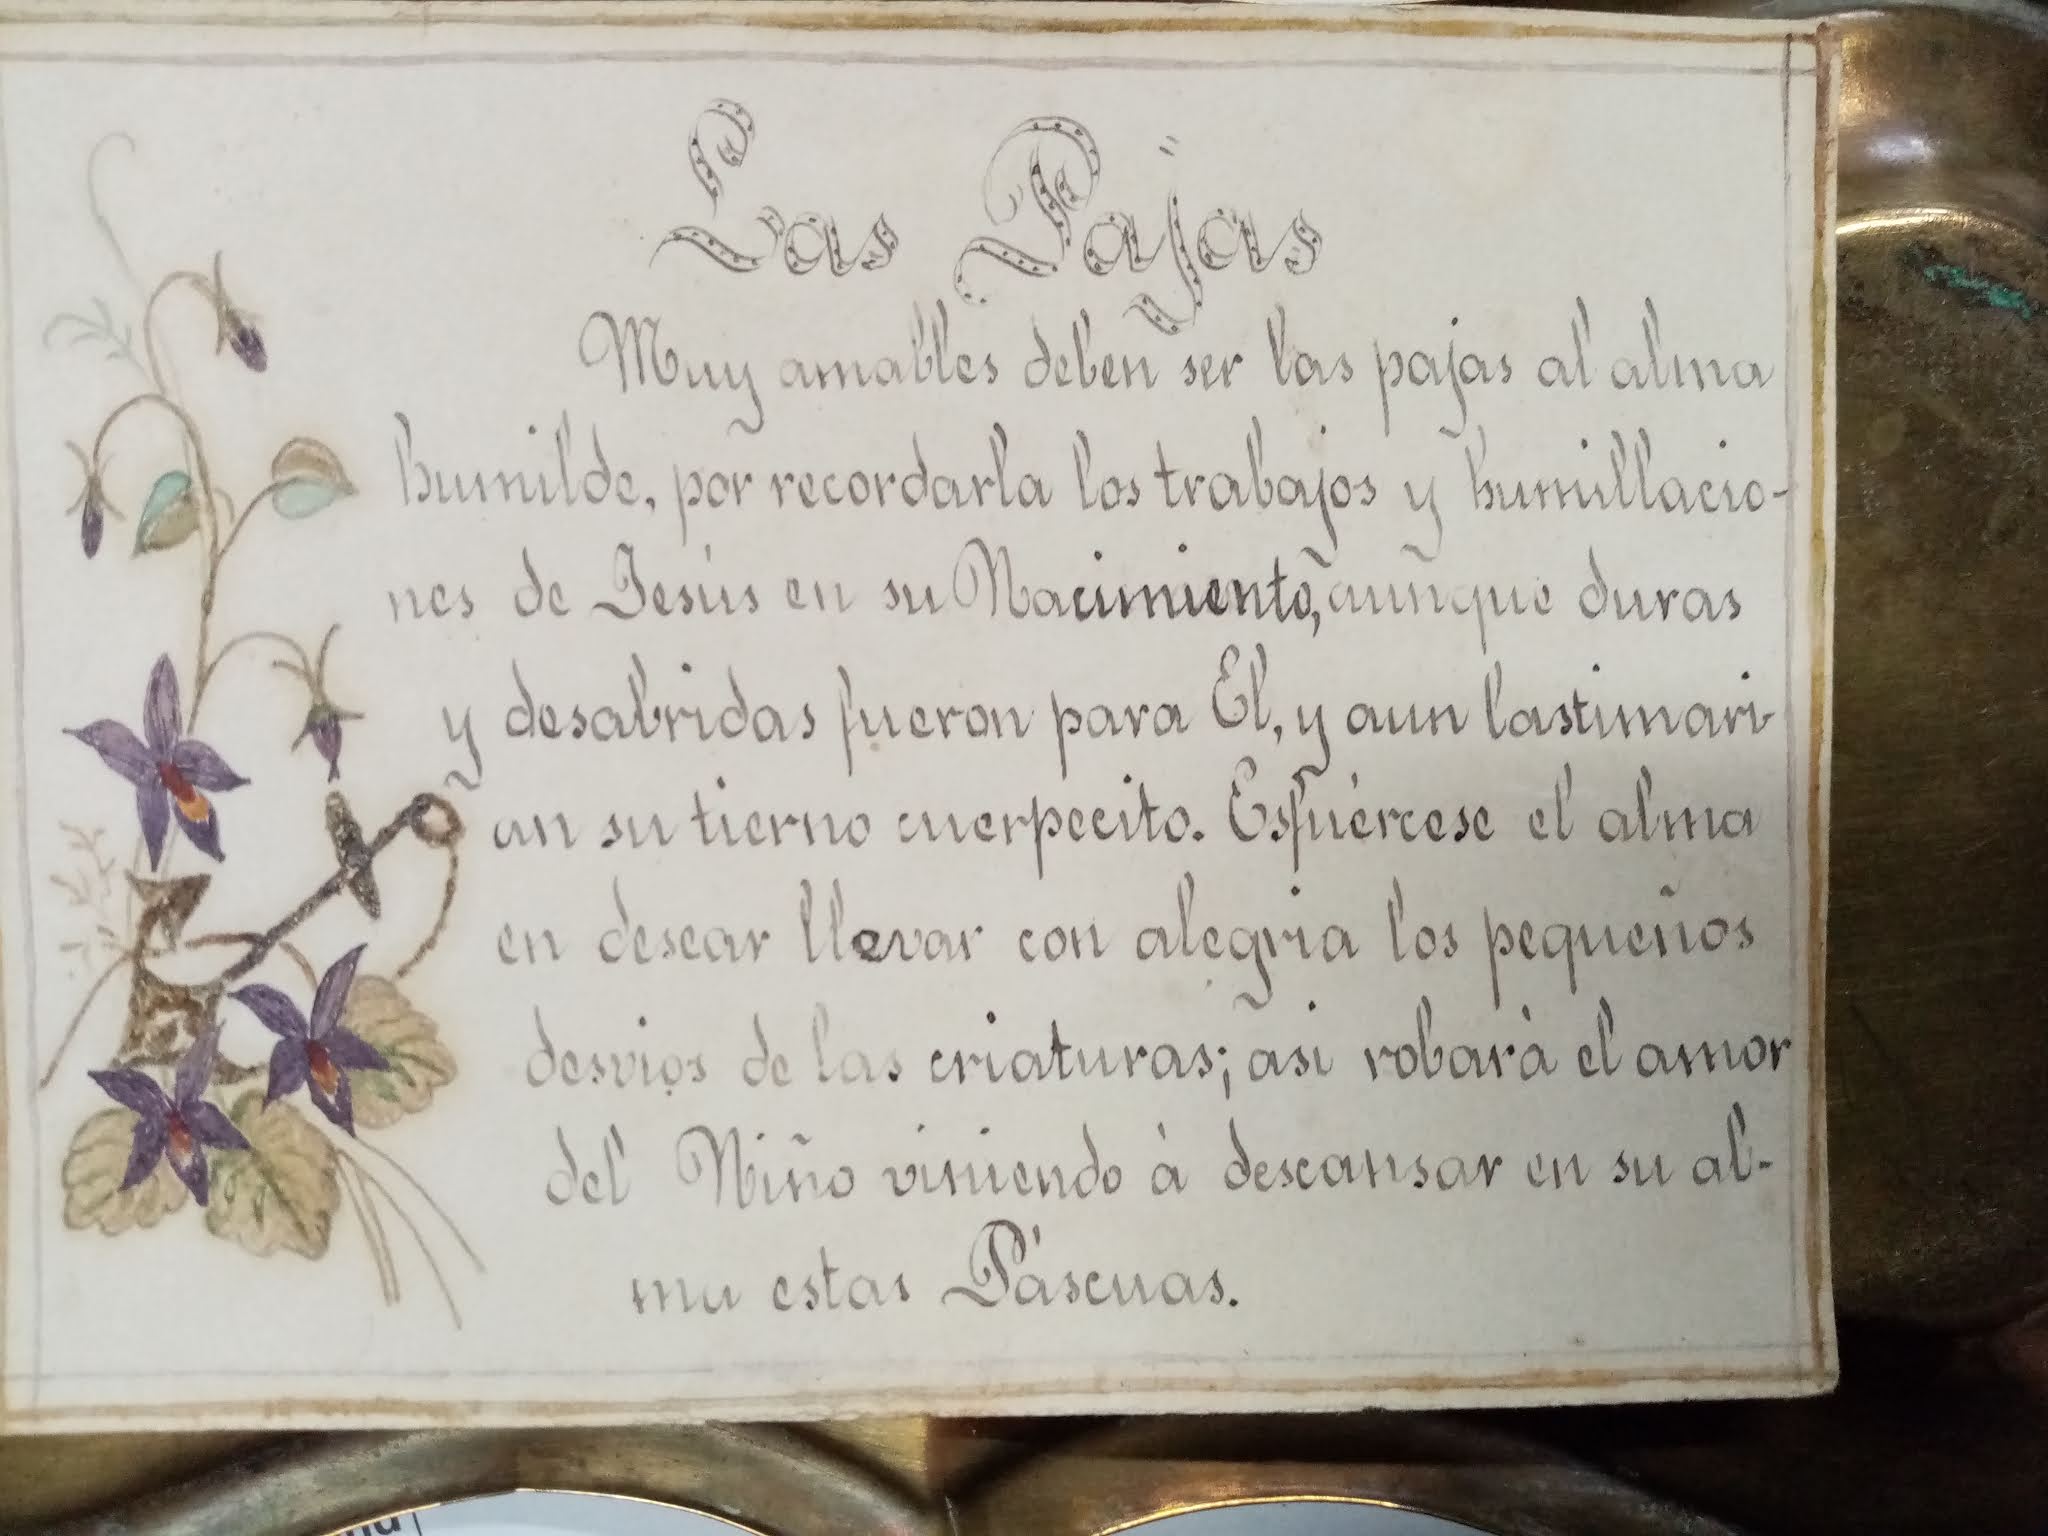 Las Pajas
Muy amables deben ser las pajas al alma
humilde, por recordarla los trabajos y humillacio-
nes de Jesús en su Nacimiento, aunque duras
y desabridas fueron para El, y aun lastimari-
an su tierno cuerpecito. Esfuércese el alma
en desear llevar con alegria los pequeños
desvios de las criaturas; asi robará el amor
del Niño viniendo á descansar en su al-
ma estas Páscuas.